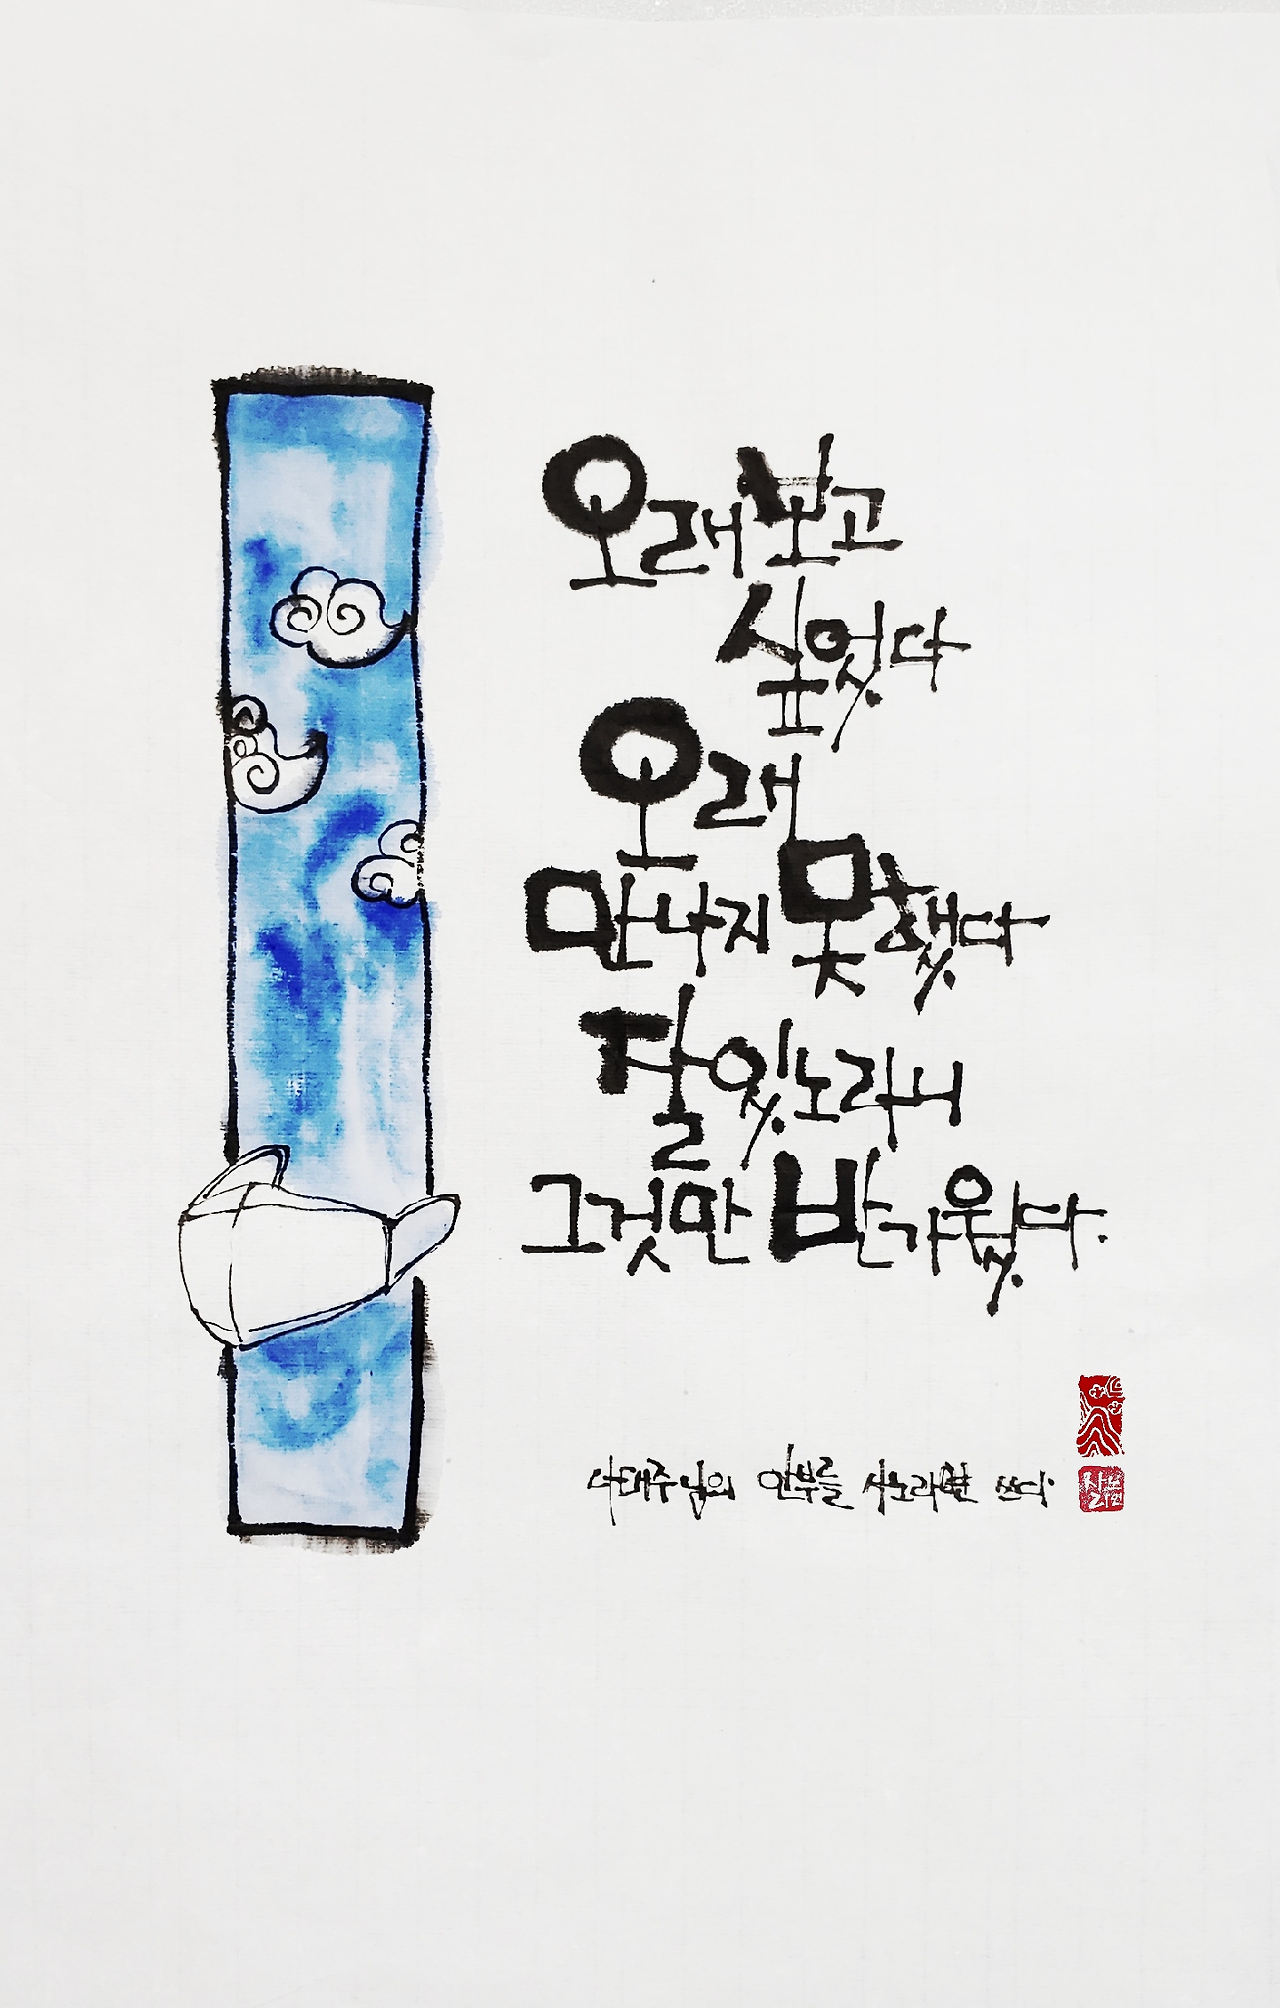 오래 보고
싶었다
오래
만나지 못했다
잘 있노라니
그것만 반가웠다.
나태주님의 안부를 쓰다